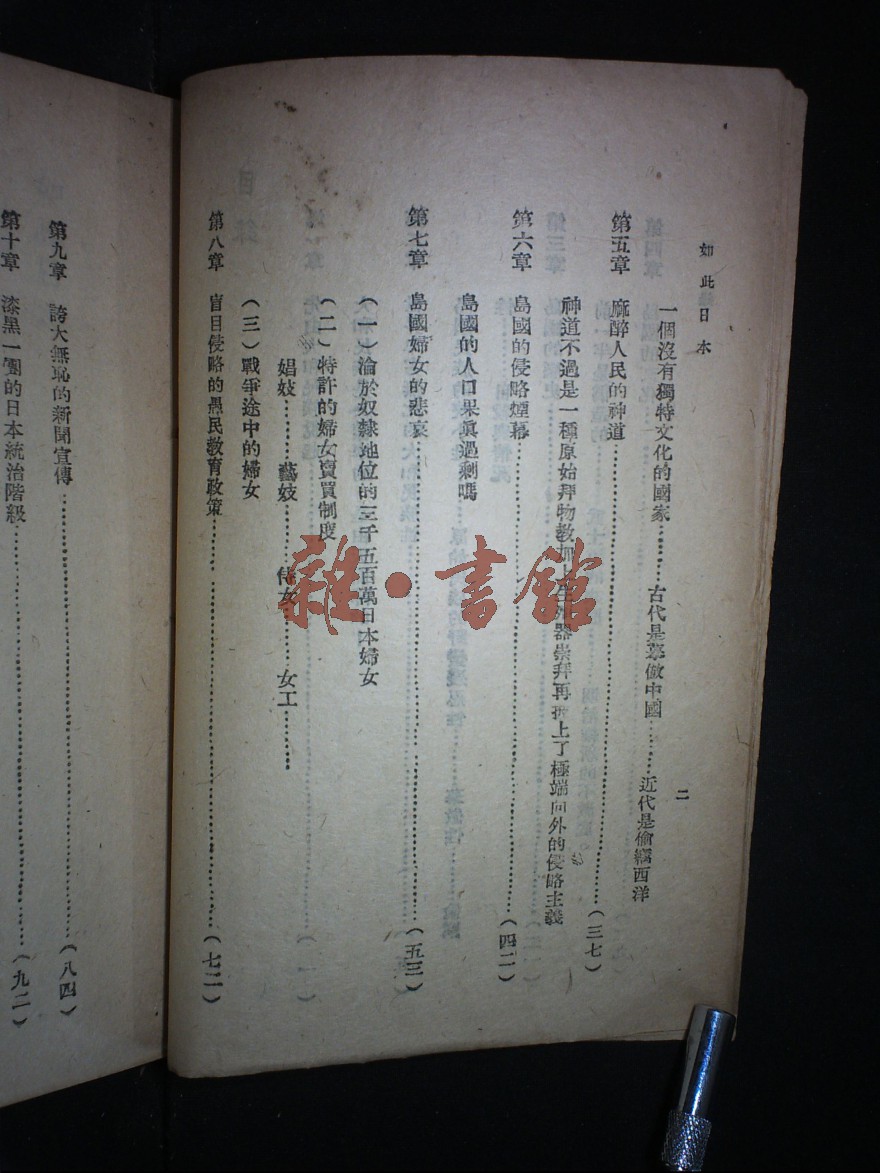 如此日本
二
一個沒有獨特文化的國家………古代是摹倣中國………近代是偷竊西洋
第五章 麻醉人民的神道………(三七)
神道不過是一種原始拜物教加上生殖器崇拜再摻上了極端向外的侵略主義
第六章 島國的侵略煙幕………(四二)
島國的人口果眞過剩嗎
第七章 島國婦女的悲哀………(五三)
(一)淪於奴隸地位的三千五百萬日本婦女
(二)特許的婦女賣買制度
娼妓………藝妓………侍女………女工………
(三)戰爭途中的婦女
第八章 盲目侵略的愚民敎育政策………(七二)
第九章 誇大無恥的新聞宣傳………(八四)
第十章 漆黑一團的日本統治階級………(九二)
雜·書館